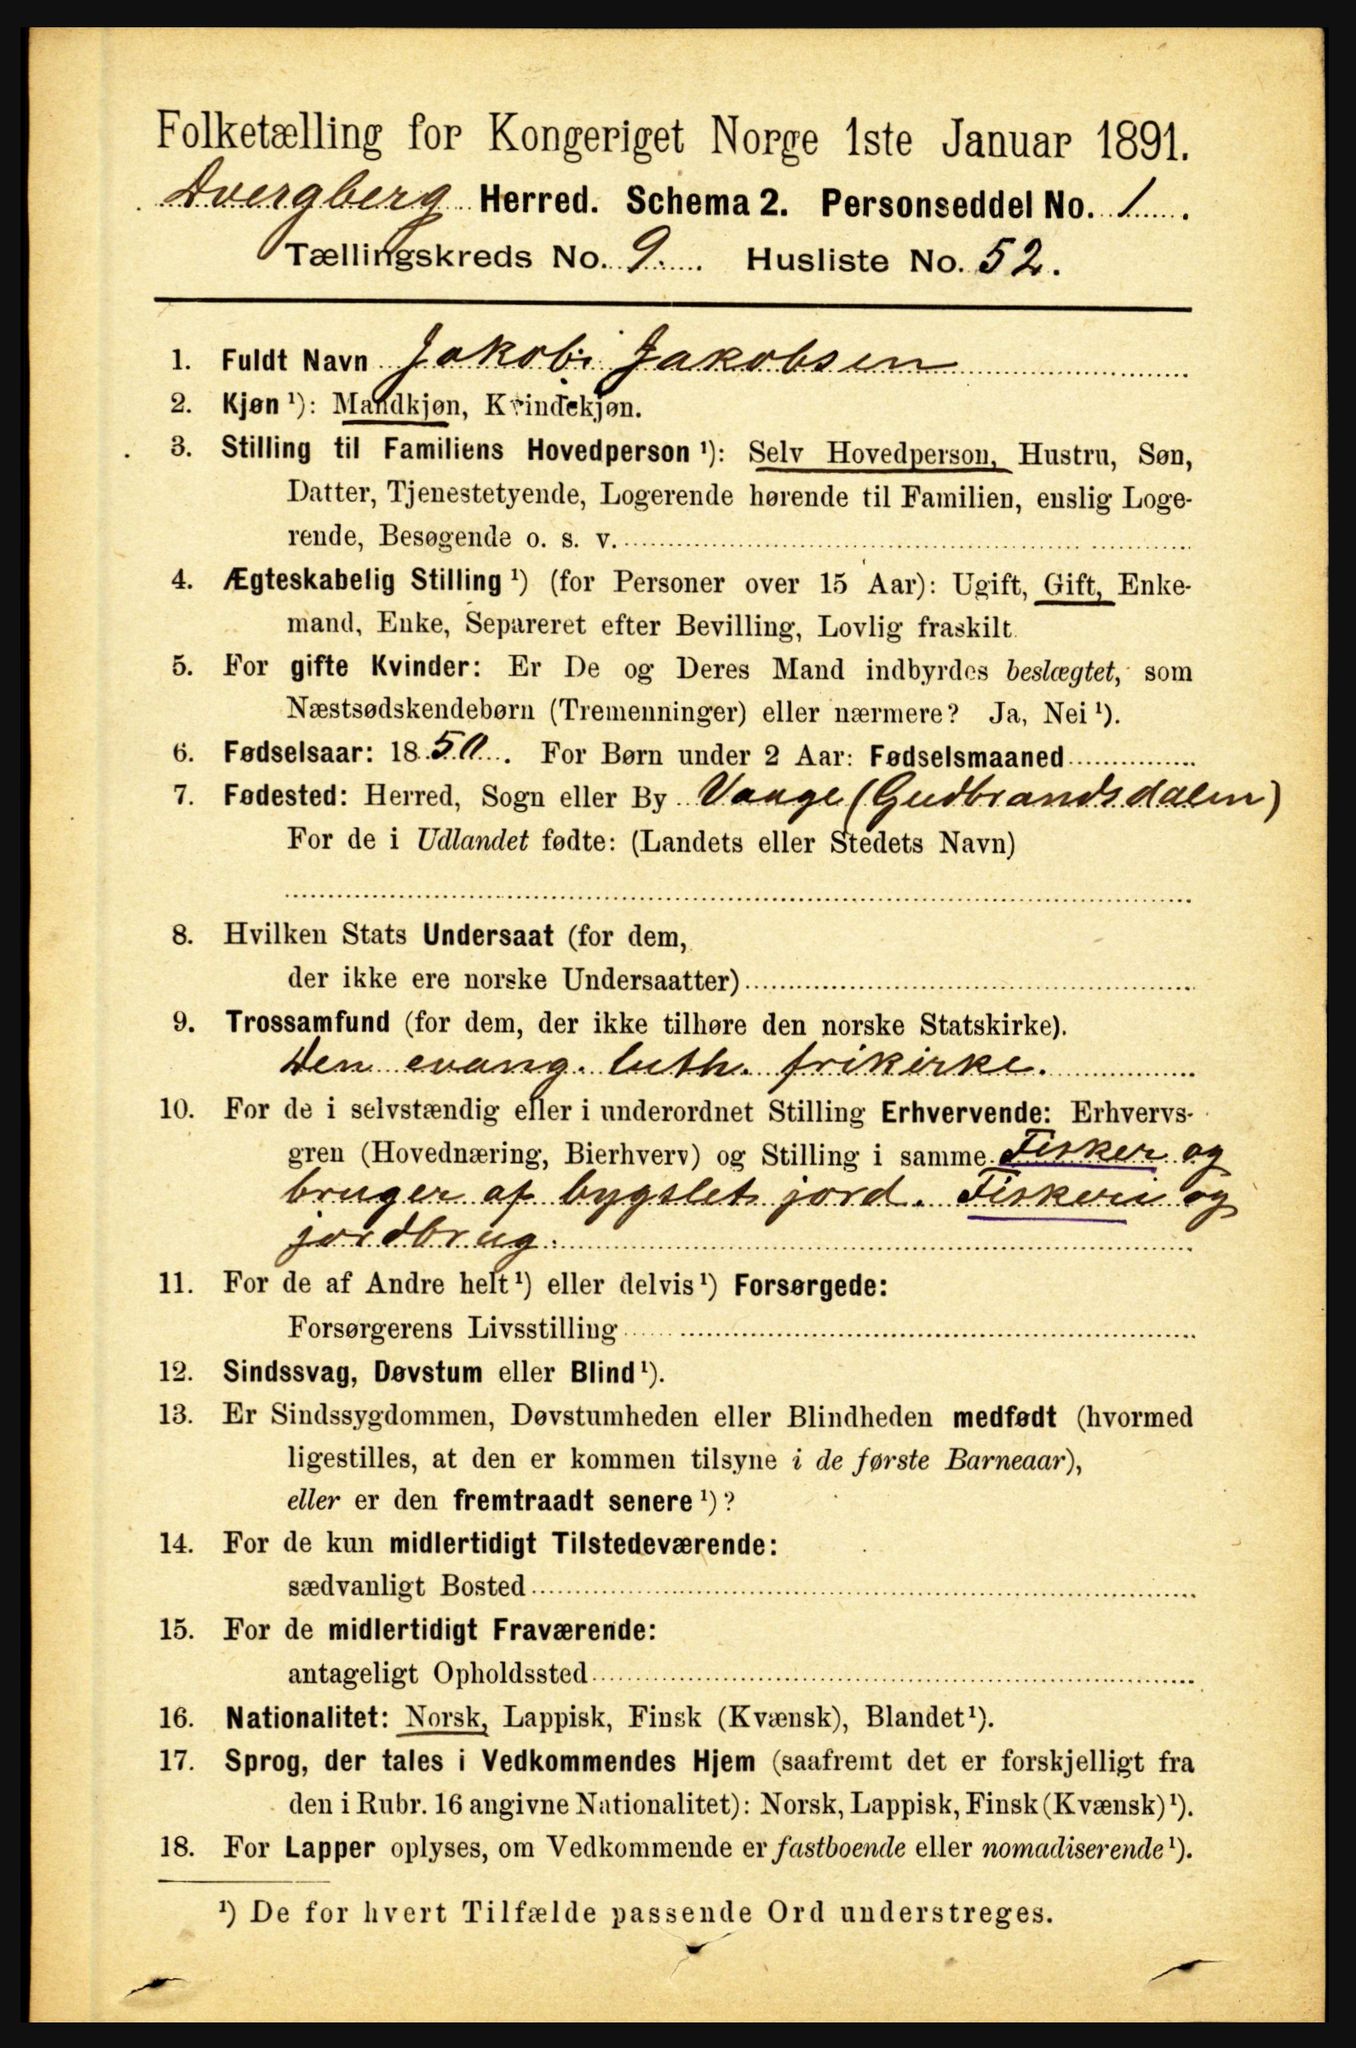 Folketælling for Kongeriget Norge 1ste Januar 1891.
Dvergberg Herred. Schema 2. Personseddel No. 1.
Tællingskreds No. 9. Husliste No. 52.
1. Fuldt Navn Jakob Jakobsen
2. Kjøn ¹): Mandkjøn, Kvindekjøn.
3. Stilling til Familiens Hovedperson ¹): Selv Hovedperson, Hustru, Søn,
Datter, Tjenestetyende, Logerende hørende til Familien, enslig Loge-
rende, Besøgende o. s. v.
4. Ægteskabelig Stilling ¹) (for Personer over 15 Aar): Ugift, Gift, Enke-
mand, Enke, Separeret efter Bevilling, Lovlig fraskilt.
5. For gifte Kvinder: Er De og Deres Mand indbyrdes beslægtet, som
Næstsødskendebørn (Tremenninger) eller nærmere? Ja, Nei ¹).
6. Fødselsaar: 1850. For Børn under 2 Aar: Fødselsmaaned
7. Fødested: Herred, Sogn eller By Vaage (Gudbrandsdalen)
For de i Udlandet fødte: (Landets eller Stedets Navn)
8. Hvilken Stats Undersaat (for dem,
der ikke ere norske Undersaatter)
9. Trossamfund (for dem, der ikke tilhøre den norske Statskirke).
Den evang. luth. frikirke.
10. For de i selvstændig eller i underordnet Stilling Erhvervende: Erhvervs-
gren (Hovednæring, Bierhverv) og Stilling i samme Fisker og
bruger af bygslet jord. Fiskeri og
jordbrug.
11. For de af Andre helt ¹) eller delvis ¹) Forsørgede:
Forsørgerens Livsstilling
12. Sindssvag, Døvstum eller Blind ¹).
13. Er Sindssygdommen, Døvstumheden eller Blindheden medfødt (hvormed
ligestilles, at den er kommen tilsyne i de første Barneaar),
eller er den fremtraadt senere ¹)?
14. For de kun midlertidigt Tilstedeværende:
sædvanligt Bosted
15. For de midlertidigt Fraværende:
antageligt Opholdssted
16. Nationalitet: Norsk, Lappisk, Finsk (Kvænsk), Blandet ¹).
17. Sprog, der tales i Vedkommendes Hjem (saafremt det er forskjelligt fra
den i Rubr. 16 angivne Nationalitet): Norsk, Lappisk, Finsk (Kvænsk) ¹).
18. For Lapper oplyses, om Vedkommende er fastboende eller nomadiserende ¹).
¹) De for hvert Tilfælde passende Ord understreges.